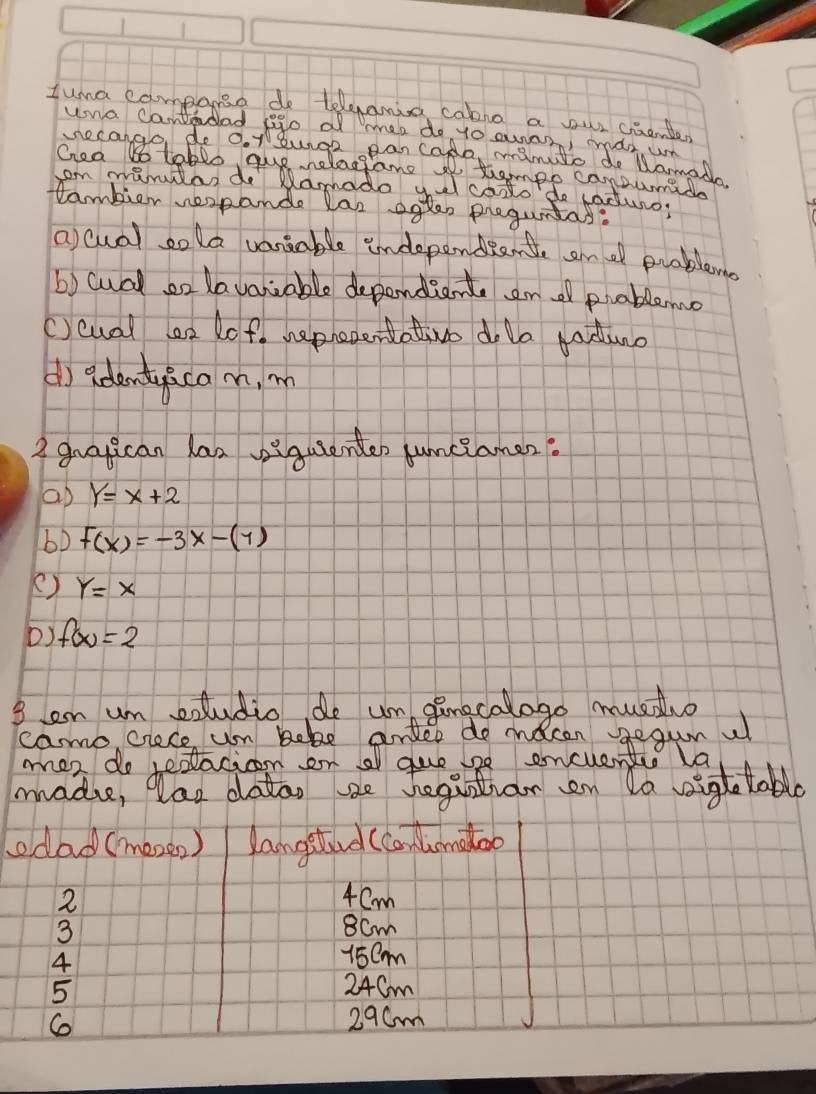 1 una compañia de telefonia cobra a sus clientes
una cantidad fijo al mes de 10 euros, más un
recargo de 0.1 euros por cada minuto de llamada.
Crea la tabla que relacione el tiempo consumido
en minutos de llamada y el costo de factura;
tambien responde las sgtes preguntas:
a) cual es la variable independiente en el problema
b) cual es la variable dependiente en el problema
c) cual es la f. representativa de la factura
d) identifica n, m
2 grafican las siguientes funciones:
a) Y = x + 2
b) f(x) = -3x - (1)
c) Y = x
D) f(x) = 2
3 en un estudio de un ginecologo muestra
como crece un bebe antes de nacer segun el
mes de gestacion en el que se encuentra la
madre, las datos se registran en la sigte tabla
edad (meses) longitud (centimetros
2 4 Cm
3 8 Cm
4 15 Cm
5 24 Cm
6 29 Cm